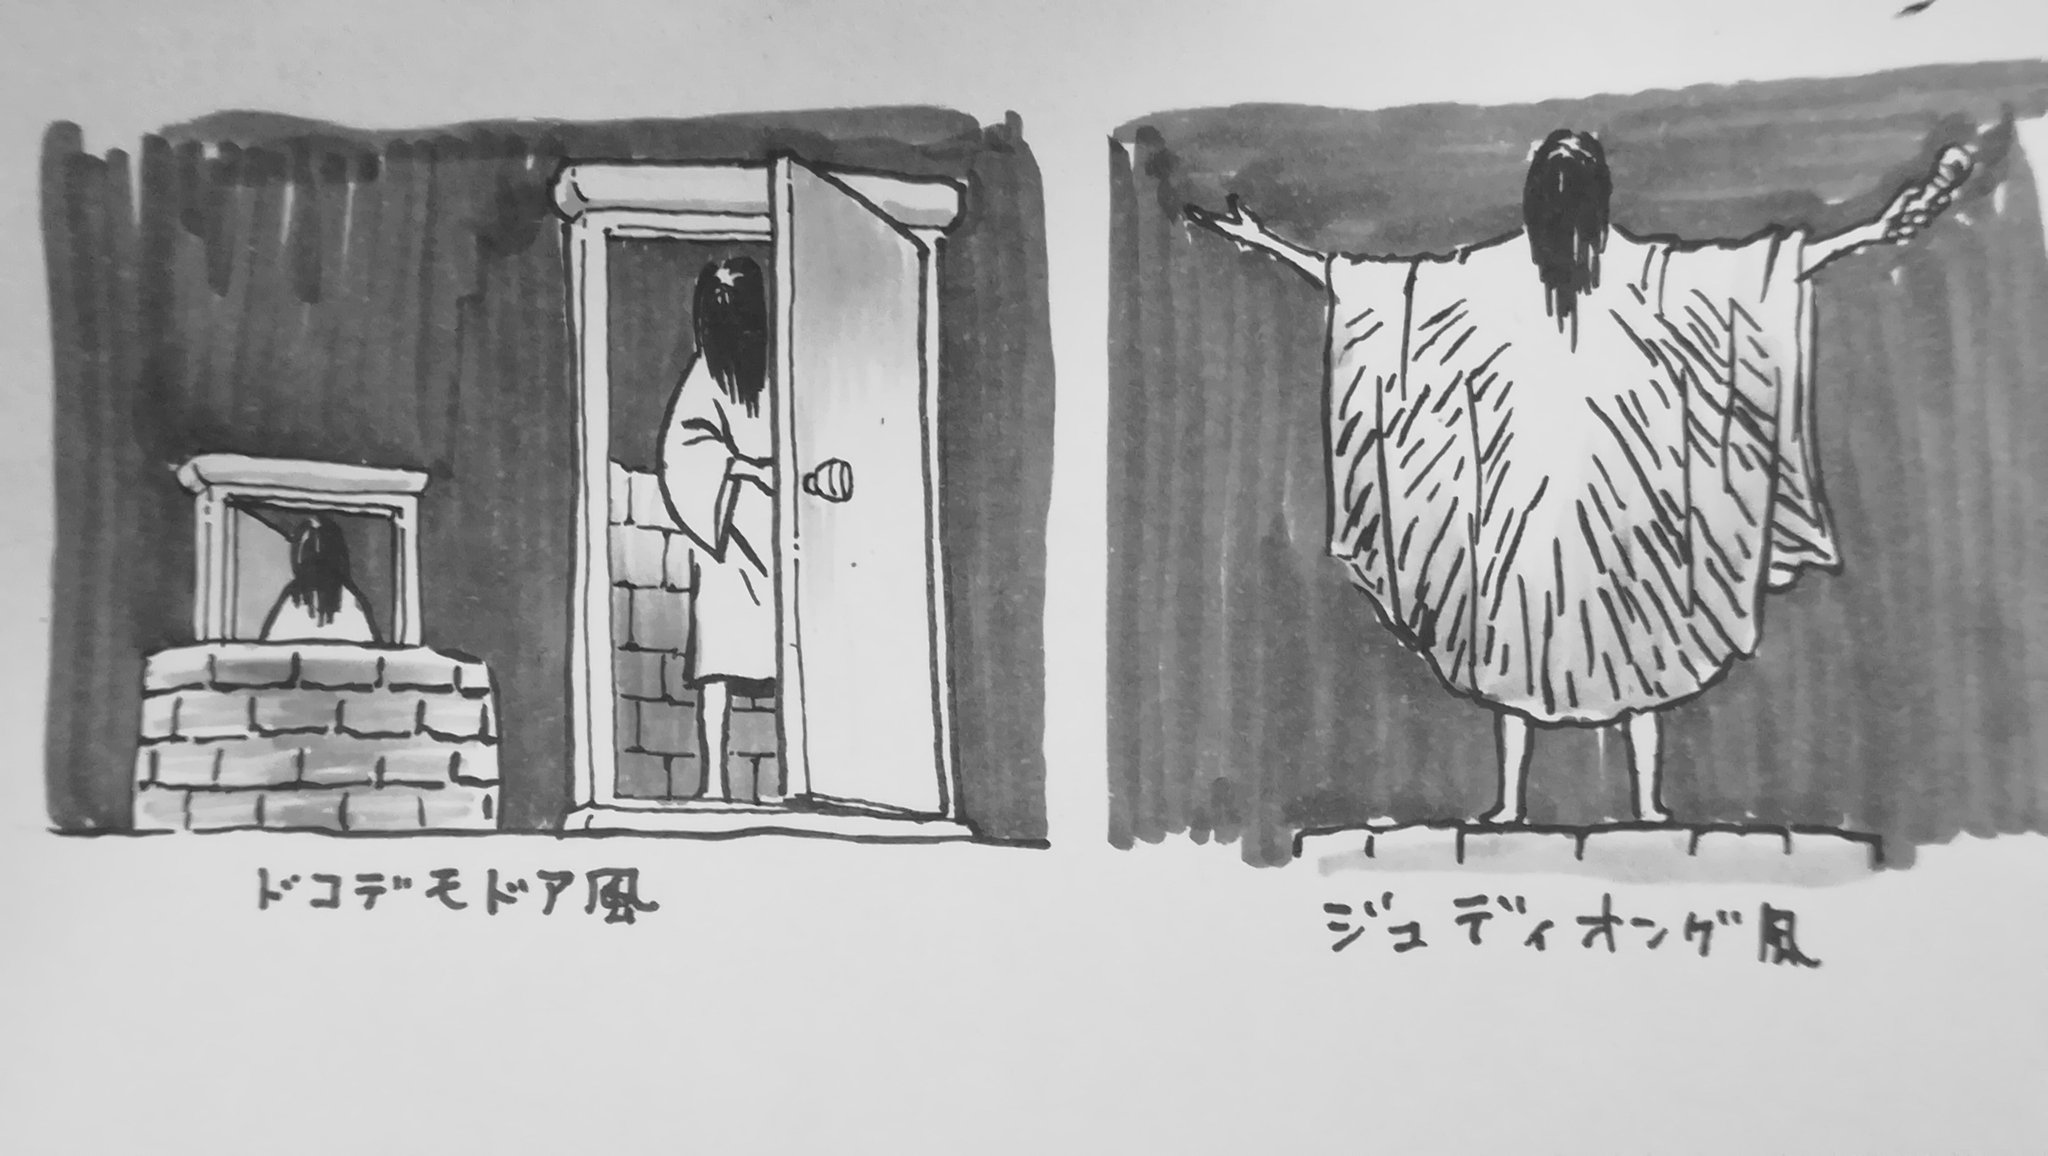 ドコデモドア風
ジュディオング風